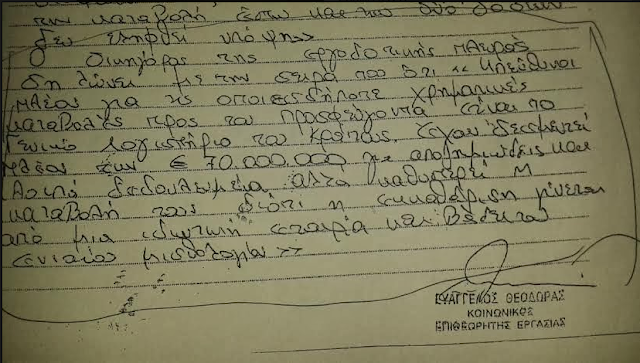 την καταβολή έστω και των δύο δόσεων
δεν εληφθεί υπόψην
Ο δικηγόρος της εργοδοτικής πλευράς
δηλώνει με την σειρά του ότι « υπεύθυνοι
πλέον για τις οποιεσδήποτε χρηματικές
καταβολές προς τον προσφεύγοντα είναι το
Γενικό Λογιστήριο του Κράτους. Έχουν δεσμευτεί
πλέον των € 70.000.000 για αποζημιώσεις και
λοιπά δεδουλευμένα αλλά καθυστερεί η
καταβολή τους διότι η εκκαθάριση γίνεται
από μια ιδιωτική εταιρία και βάσει του
ενιαίου μισθολογίου »
ΕΥΑΓΓΕΛΟΣ ΘΕΟΔΩΡΑΣ
ΚΟΙΝΩΝΙΚΟΣ
ΕΠΙΘΕΩΡΗΤΗΣ ΕΡΓΑΣΙΑΣ